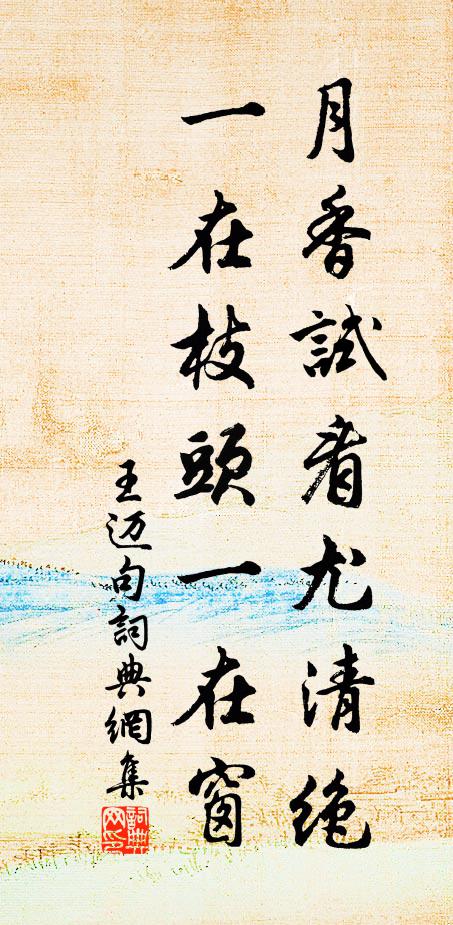 月香試看尤清絶
一在枝頭一在窗
王迈句詞典網集
詞典
网印